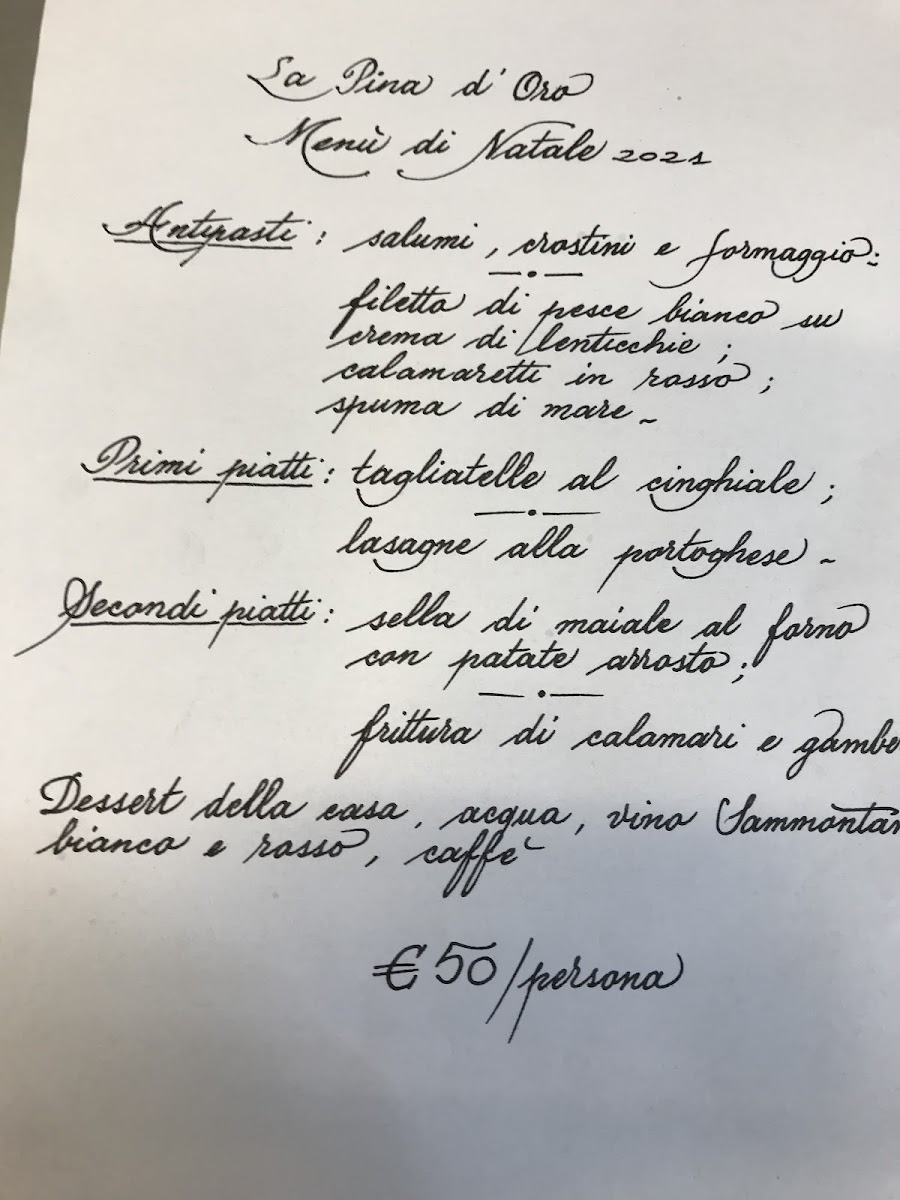 La Pina d'Oro
Menù di Natale 2021
Antipasti : salumi , crostini e formaggio.
filetto di pesce bianco su
crema di lenticchie ;
calamaretti in rosso ;
spuma di mare ~
Primi piatti : tagliatelle al cinghiale ;
lasagne alla portoghese ~
Secondi piatti : sella di maiale al forno
con patate arrosto ;
frittura di calamari e gambe
Dessert della casa , acqua , vino Sammontan
bianco e rosso , caffè
€ 50/persona